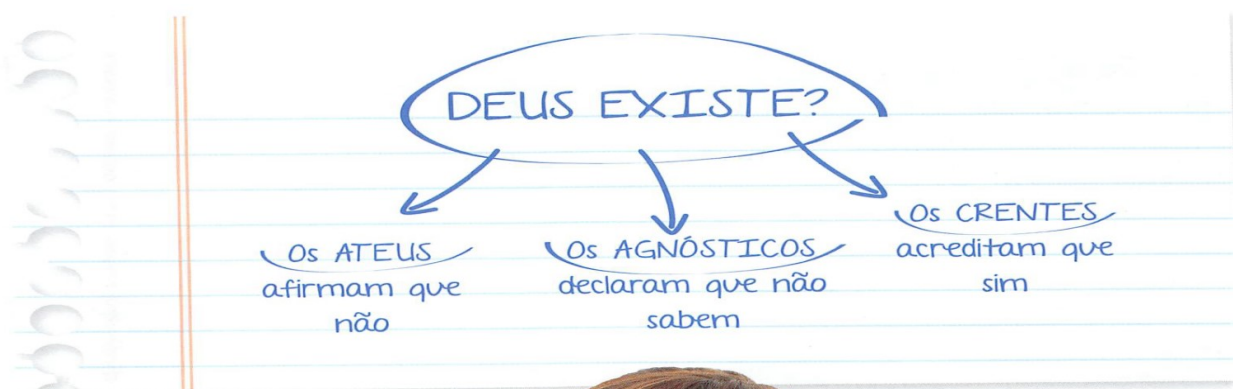 DEUS EXISTE?
Os ATEUS
afirmam que
não
Os AGNÓSTICOS
declaram que não
sabem
Os CRENTES
acreditam que
sim